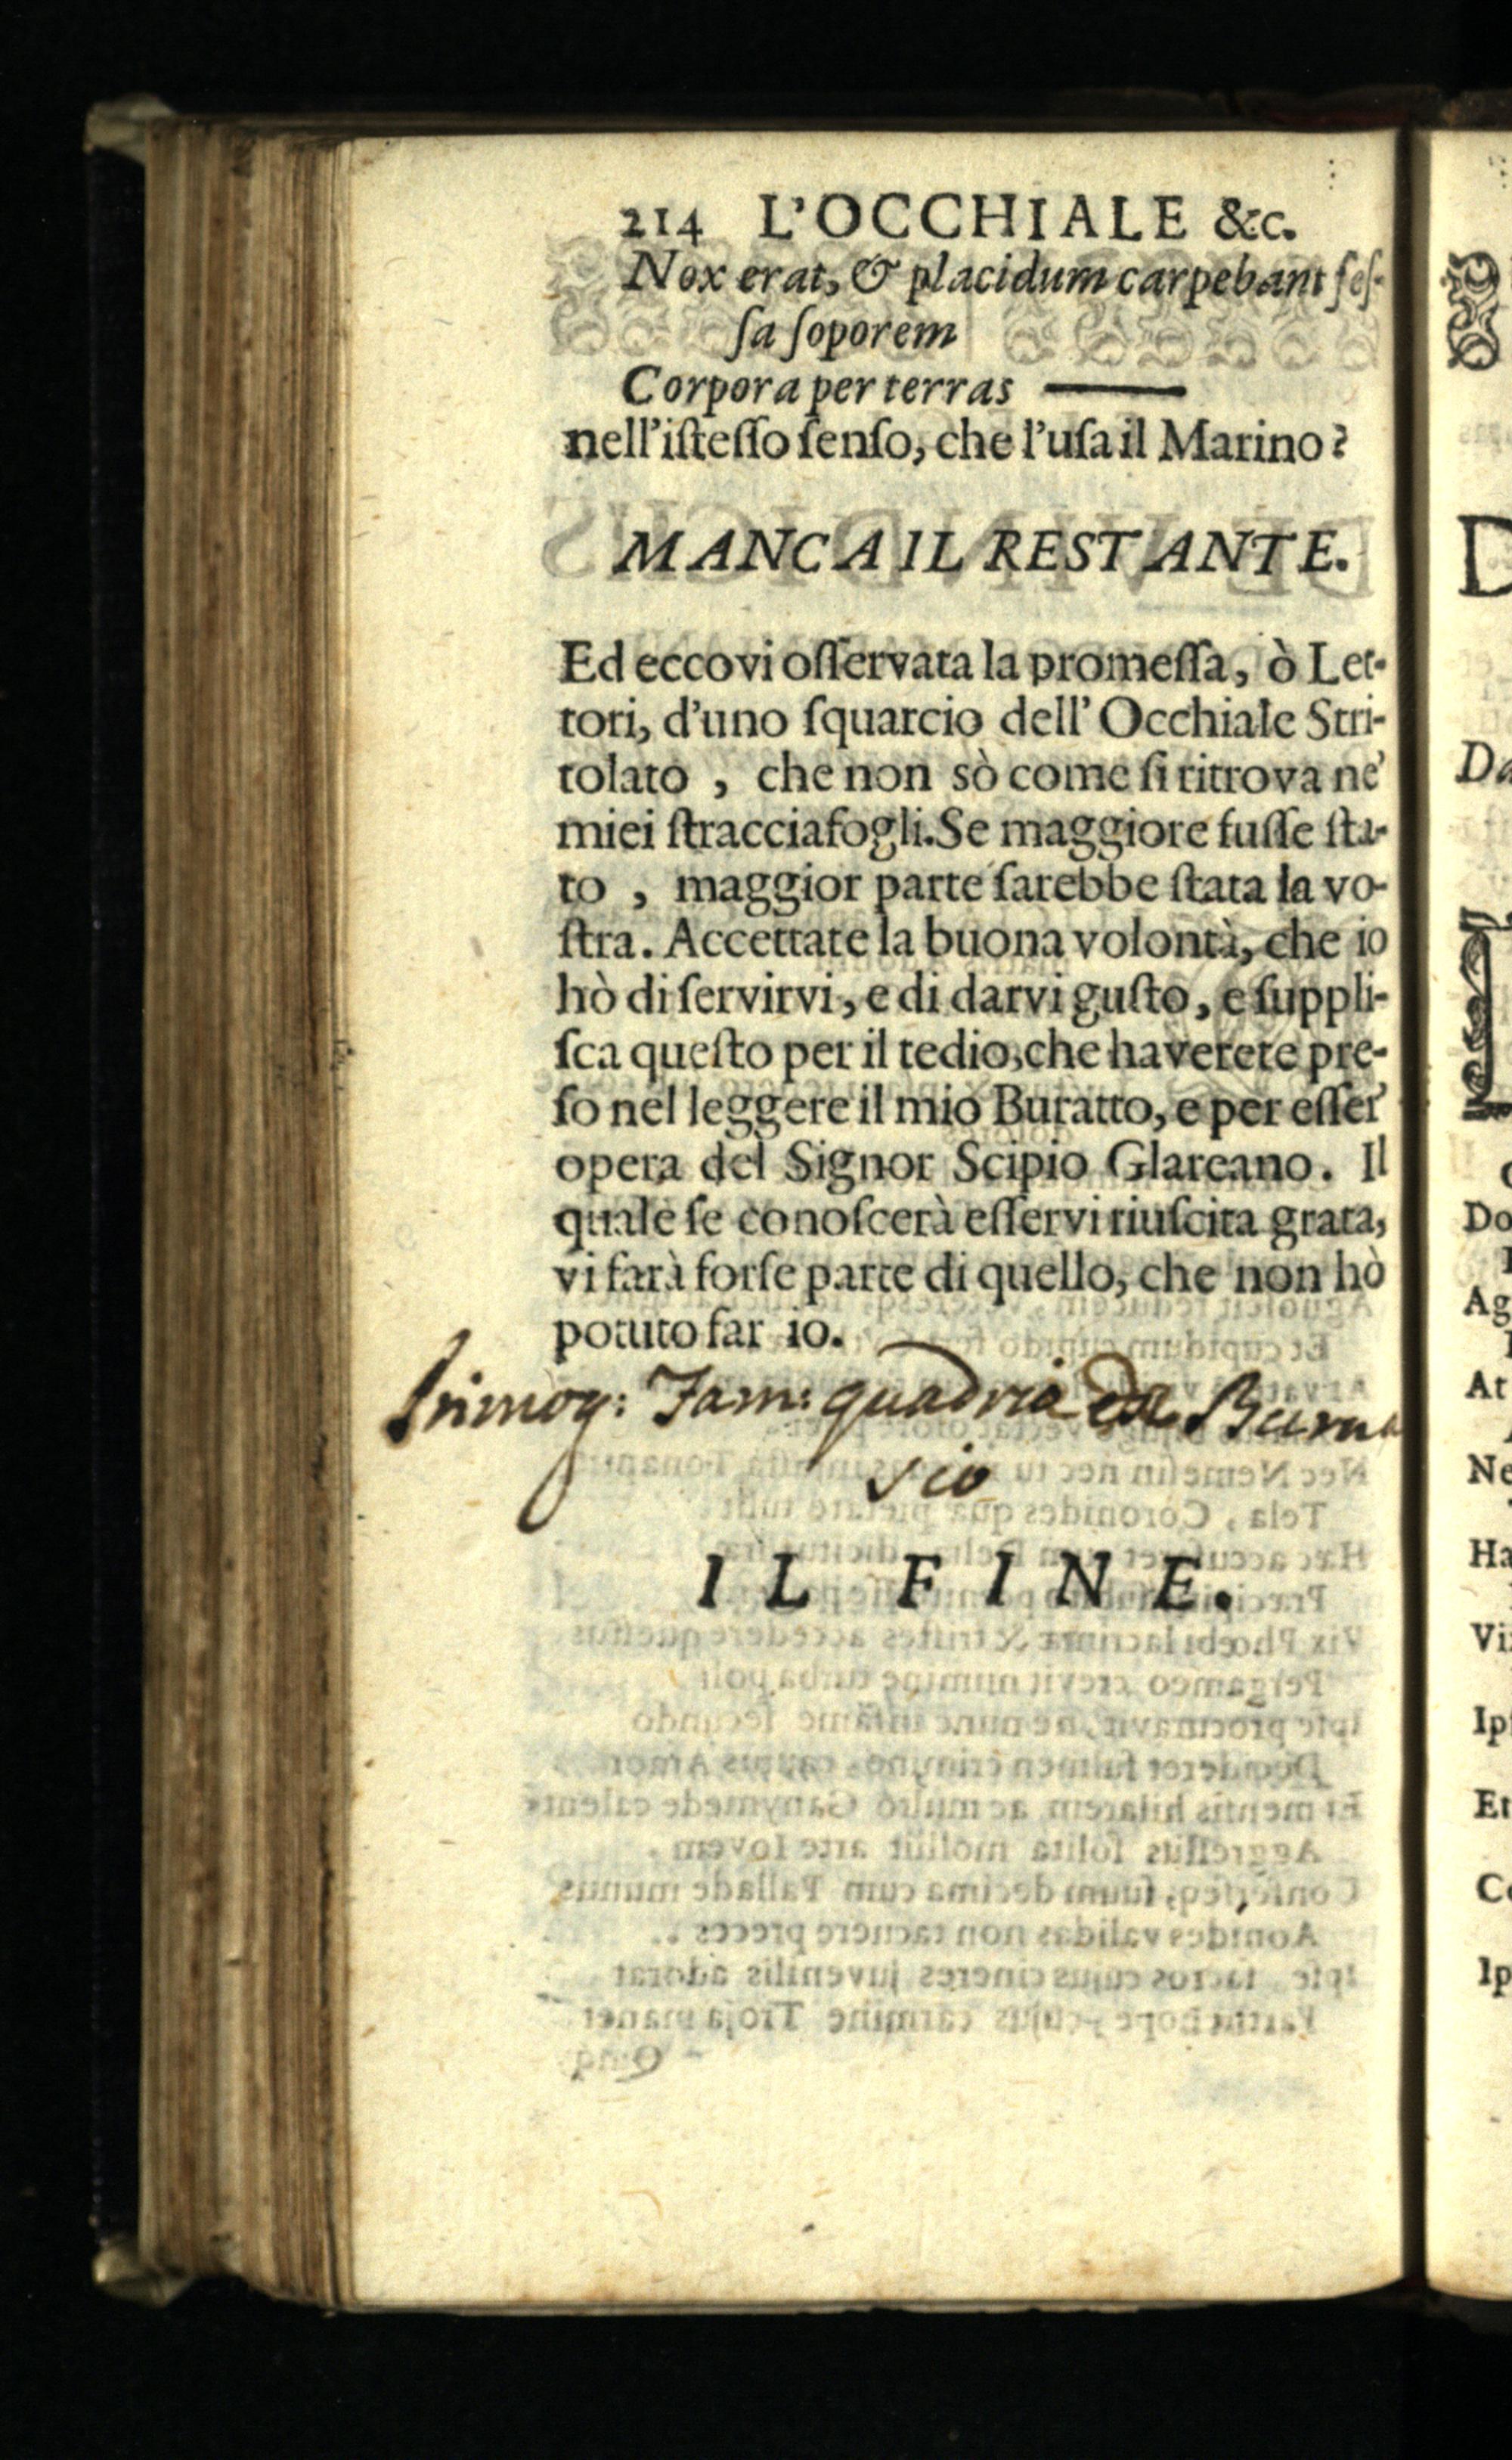 214 L'OCCHIALE &c.
Nox erat, & placidum carpebant feſ-
ſa ſoporem
Corpora per terras ———
nell'iſteſſo ſenſo, che l'uſa il Marino?
MANCA IL RESTANTE.
Ed eccovi oſſervata la promeſſa, ò Let-
tori, d'uno ſquarcio dell' Occhiale Stri-
tolato , che non sò come ſi ritrova ne'
miei ſtracciafogli. Se maggiore fuſſe ſta-
to , maggior parte ſarebbe ſtata la vo-
ſtra. Accettate la buona volontà, che io
hò di ſervirvi, e di darvi guſto, e ſuppli-
ſca queſto per il tedio, che haverete pre-
ſo nel leggere il mio Buratto, e per eſſer'
opera del Signor Scipio Glareano. Il
quale ſe conoſcerà eſſervi riuſcita grata,
vi farà forſe parte di quello, che non hò
potuto far io.
quadria
sio
IL FINE.